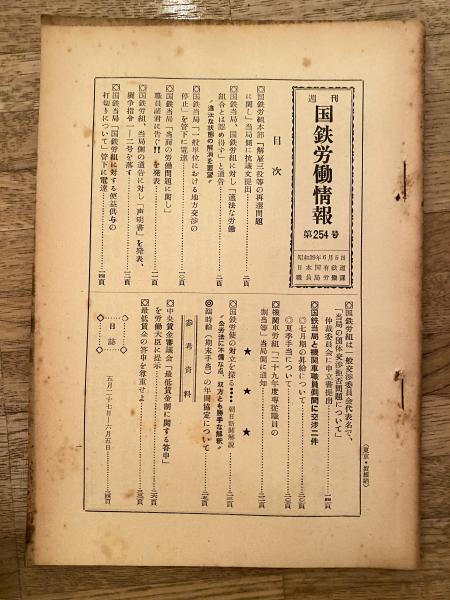 週刊
国鉄労働情報
第254号
昭和29年6月5日
日本国有鉄道
職員局労働課
目次
◎国鉄労組本部「解雇三役等の再選問題
に関し」当局側に抗議文提出
◎国鉄当局、国鉄労組に対し「適法な労働
組合とは認め得ず」と通告
〝違法な状態の解消を要望〟
◎国鉄当局「一般単位における地方交渉の
停止」を管下に電達
◎国鉄当局「当面の労働問題に関し」
職員諸君に告ぐ!!を発表
◎国鉄労組、当局側の通告に対し「声明書」を発表、
闘争指令一―二号を落す
◎国鉄当局「国鉄労組に対する便益供与の
打切りについて」管下に電達
◎国鉄労組は一般交渉委員会代表名で、
「当局の団体交渉拒否問題について」
仲裁委員会に申立書提出
◎国鉄当局と機関車職員側間に交渉二件
◎七月期の昇給について
◎夏季手当について
◎機関車労組「二十九年度専従職員の
制当等」当局側に通知
★ ★ ★
◎国鉄労使の対立を探る
朝日新聞解説
〝公労法に不備な点、双方とも勝手な解釈〟
◎臨時給(期末手当)の年間協定について
参考資料
◎中央賃金審議会「最低賃金制に関する答申」
を労働大臣に提示
◎最低賃金の答申を尊重せよ
日誌
五月二十七日―六月五日